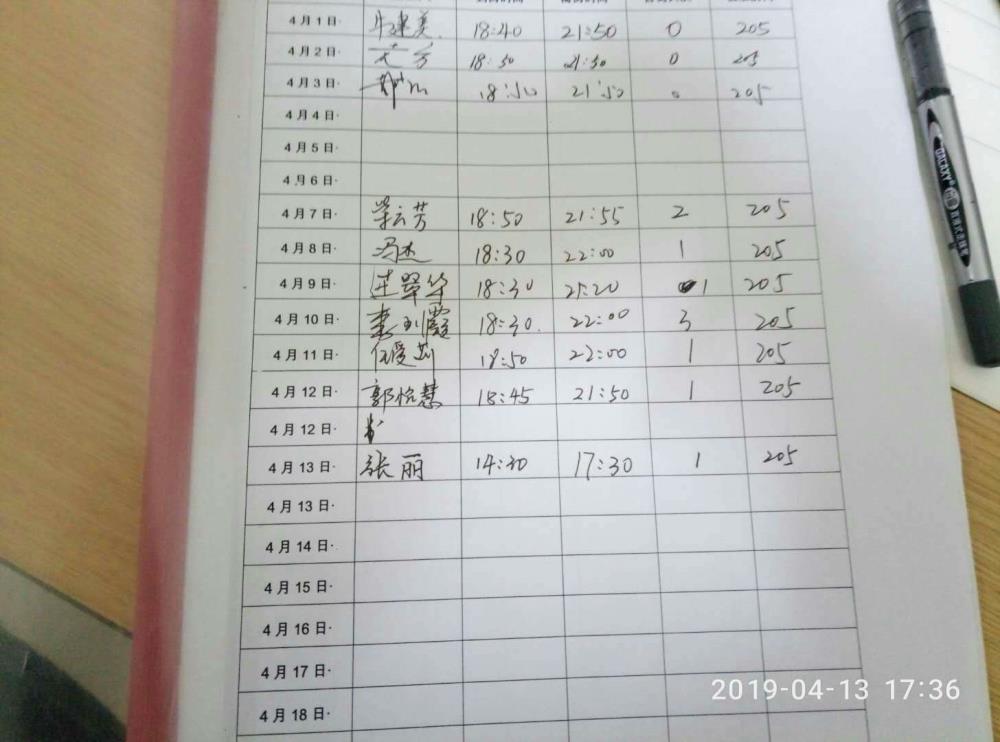 4月1日 牛建美 18:40 21:50 0 205
4月2日 18:50 21:50 0 205
4月3日 18:50 21:50 0 205
4月4日
4月5日
4月6日
4月7日 柴云芳 18:50 21:55 2 205
4月8日 冯杰 18:30 22:00 1 205
4月9日 18:30 21:20 1 205
4月10日 18:30 22:00 3 205
4月11日 任爱莉 18:50 22:00 1 205
4月12日 郭怡慧 18:45 21:50 1 205
4月12日
4月13日 张丽 14:30 17:30 1 205
4月13日
4月14日
4月15日
4月16日
4月17日
4月18日
GALAXY
2019-04-13 17:36